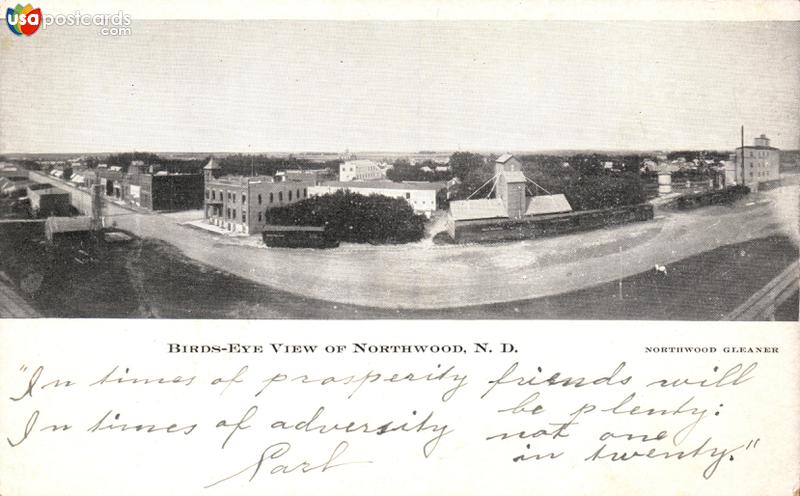 usapostcards
.com
BIRDS-EYE VIEW OF NORTHWOOD, N. D.
NORTHWOOD GLEANER
"In times of prosperity friends will
be plenty:
In times of adversity not one
in twenty."